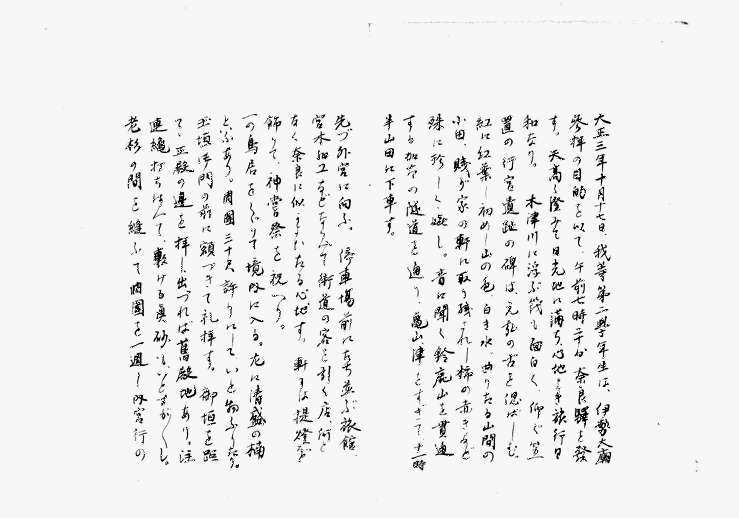 大正三年十月十七日、我等第二學年生は、伊勢大廟
參拜の目的を以て、午前七時二十分奈良驛を發
す。天高く澄みて日光地に滿ち、心地よき旅行日
和なり。木津川に浮ぶ筏も面白く、仰ぐ笠
置の行宮遺趾の碑は、元弘の古を偲ばしむ。
紅に紅葉し初めし山の色、白き水、曲りたる山間の
小田、賤が家の軒に取り殘されし柿の赤きなど
殊に珍しく嬉し。音に聞く鈴鹿山を貫通
する加太の隧道を過り、龜山、津をすぎて十一時
半山田に下車す。
先づ外宮に向ふ。停車場前に立ち並ぶ旅館、
宮木細工などならべて街道の客を引く店、何と
なく奈良に似よひたる心地す。軒には提燈など
飾りて、神嘗祭を祝へり。
一の鳥居をくゞりて境内に入る。左に清盛の楠
といふあり。周圍三十尺許りにしていと物ふりたり。
玉垣御門の前に額づきて礼拜す。御垣を距
て、正殿の邊を拜し出づれば舊殿地あり。注
連繩打ちはへて、敷ける眞砂もいとすが〱し。
老杉の間を縫ふて周圍を一週し内宮行の